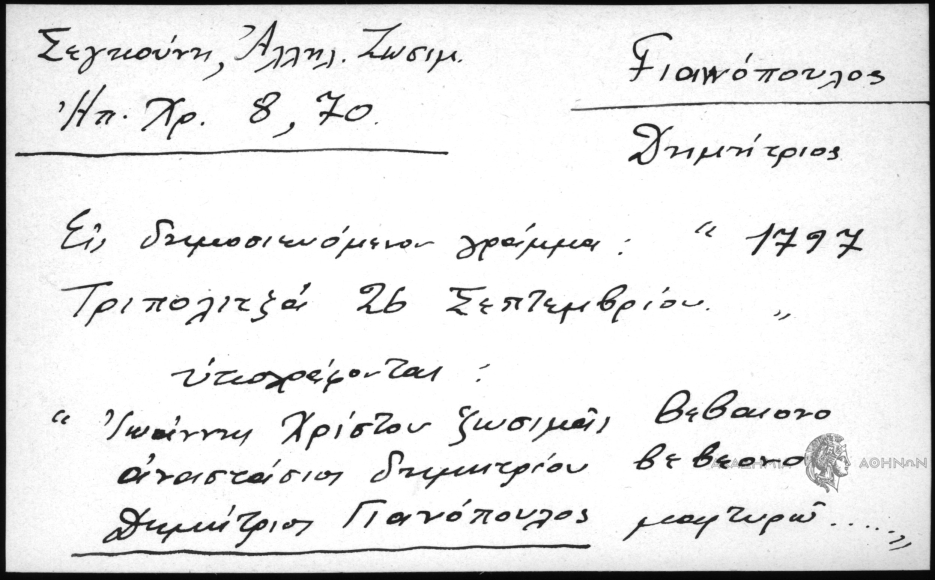 Σεγκούνη, Ἀλληλ. Ζωσιμ.
Ἠπ. Χρ. 8, 70.
Γιανόπουλος
Δημήτριος
Εἰς δημοσιευόμενον γράμμα: “ 1797
Τριπολιτζᾶ 26 Σεπτεμβρίου. „
ὑπογράφονται:
“ Ἰωάννης Χρίστου ζωσιμᾶς βεβαιονο
ἀναστάσιος δημητρίου βεβεονο
Δημήτριος Γιανόπουλος μαρτυρῶ......„
ΑΚΑΔΗΜΙΑ ΑΘΗΝΩΝ